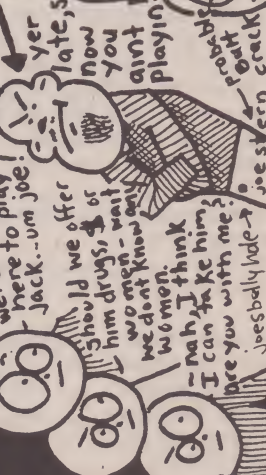 here to play
jack.-um joe!
should we offer
him drugs, $ or
women - wait
we dont know any
women.
-nah, I think
I can take him
are you with me?
yer
late, s
now
you
aint
playin
butt
crack